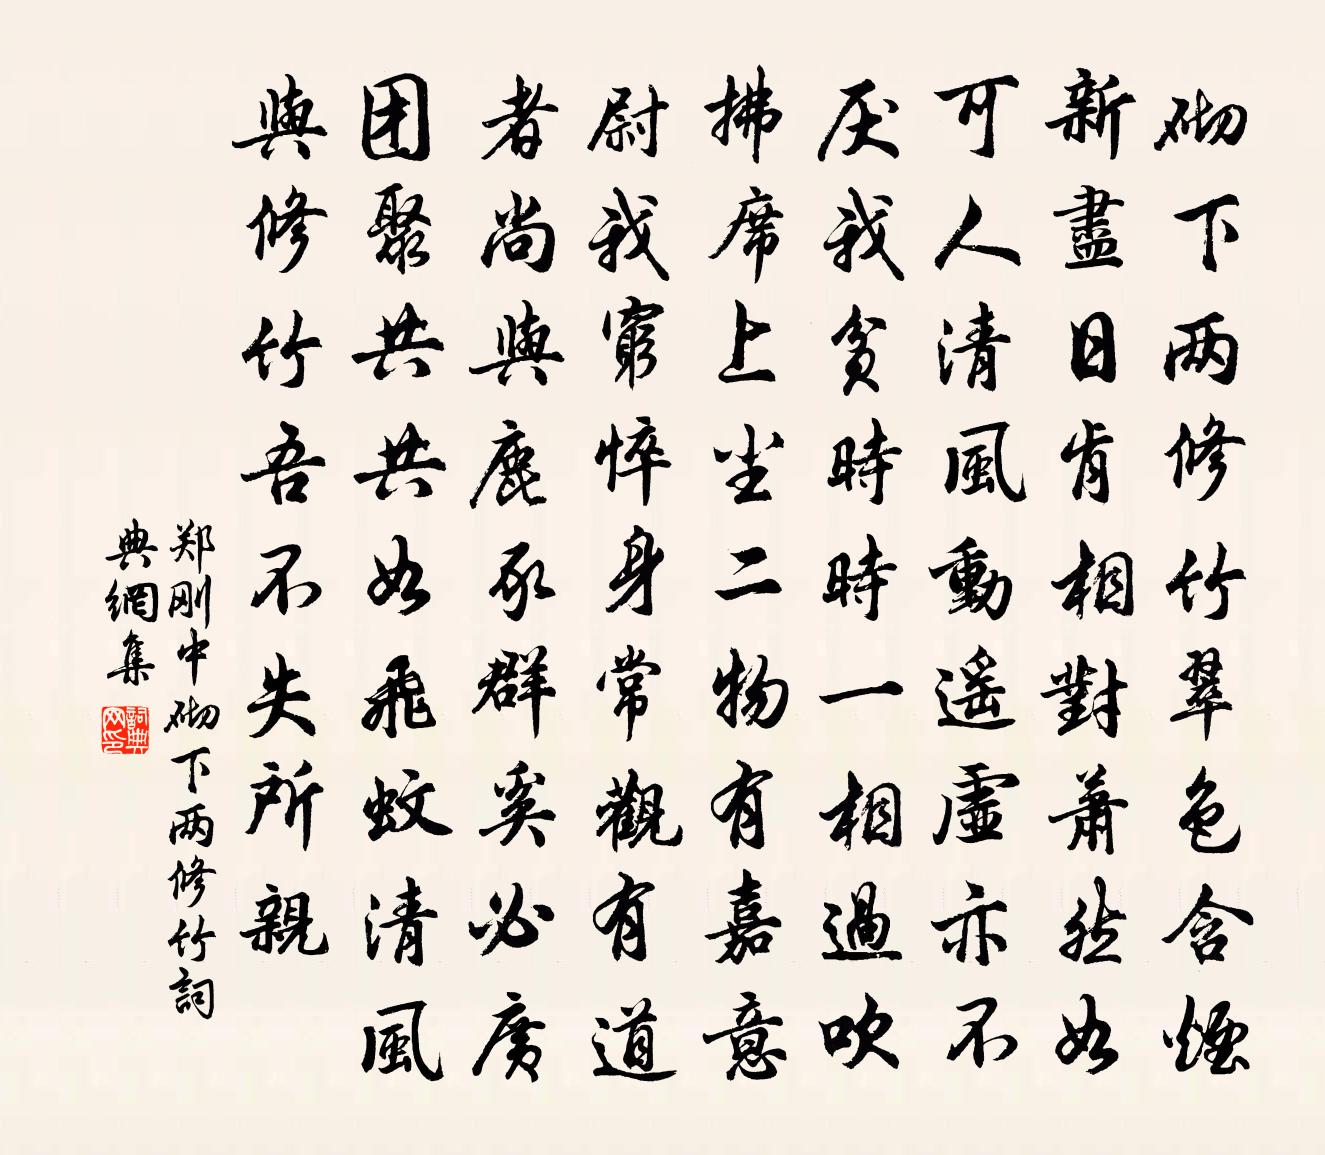 砌下两修竹翠色含煙
新盡日肯相對蕭然如
可人清風動遥虚亦不
厌我貧時時一相過吹
拂席上尘二物有嘉意
尉我窮悴身常觀有道
者尚與鹿豕群奚必廣
团聚共共如飛蚊清風
與修竹吾不失所親
郑刚中砌下两修竹詞
典網集
詞典网印